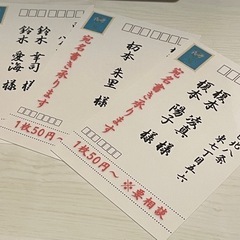 北八条
東七丁目五ノ六
榎本 凌真 様
榎本 陽子 様
宛名書き承ります
1枚50円～ ※要相談
杤本 朱里 様
宛名書き承ります
1枚50円～
鈴木 幸司 様
鈴木 愛海 様